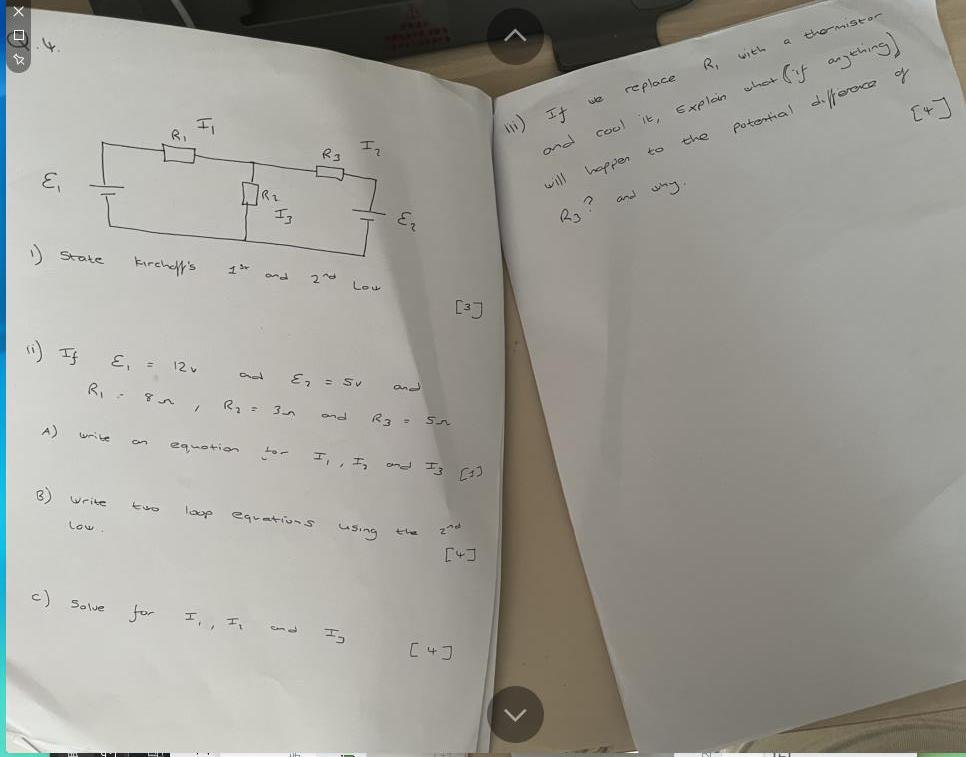 Q.4.
R₁ I₁
R₃ I₂
ε₁
R₂
I₃
ε₂
i) State Kirchoff's 1st and 2nd Law
[3]
ii) If ε₁ = 12v and ε₂ = 5v and
R₁ = 8Ω, R₂ = 3Ω and R₃ = 5Ω
A) write an equation for I₁, I₂ and I₃ [1]
B) Write two loop equations using the 2nd
Law.
[4]
C) Solve for I₁, I₂ and I₃
[4]
iii) If we replace R₁ with a thermistor
and cool it, Explain what (if anything)
will happen to the potential difference of
R₃? and why.
[4]